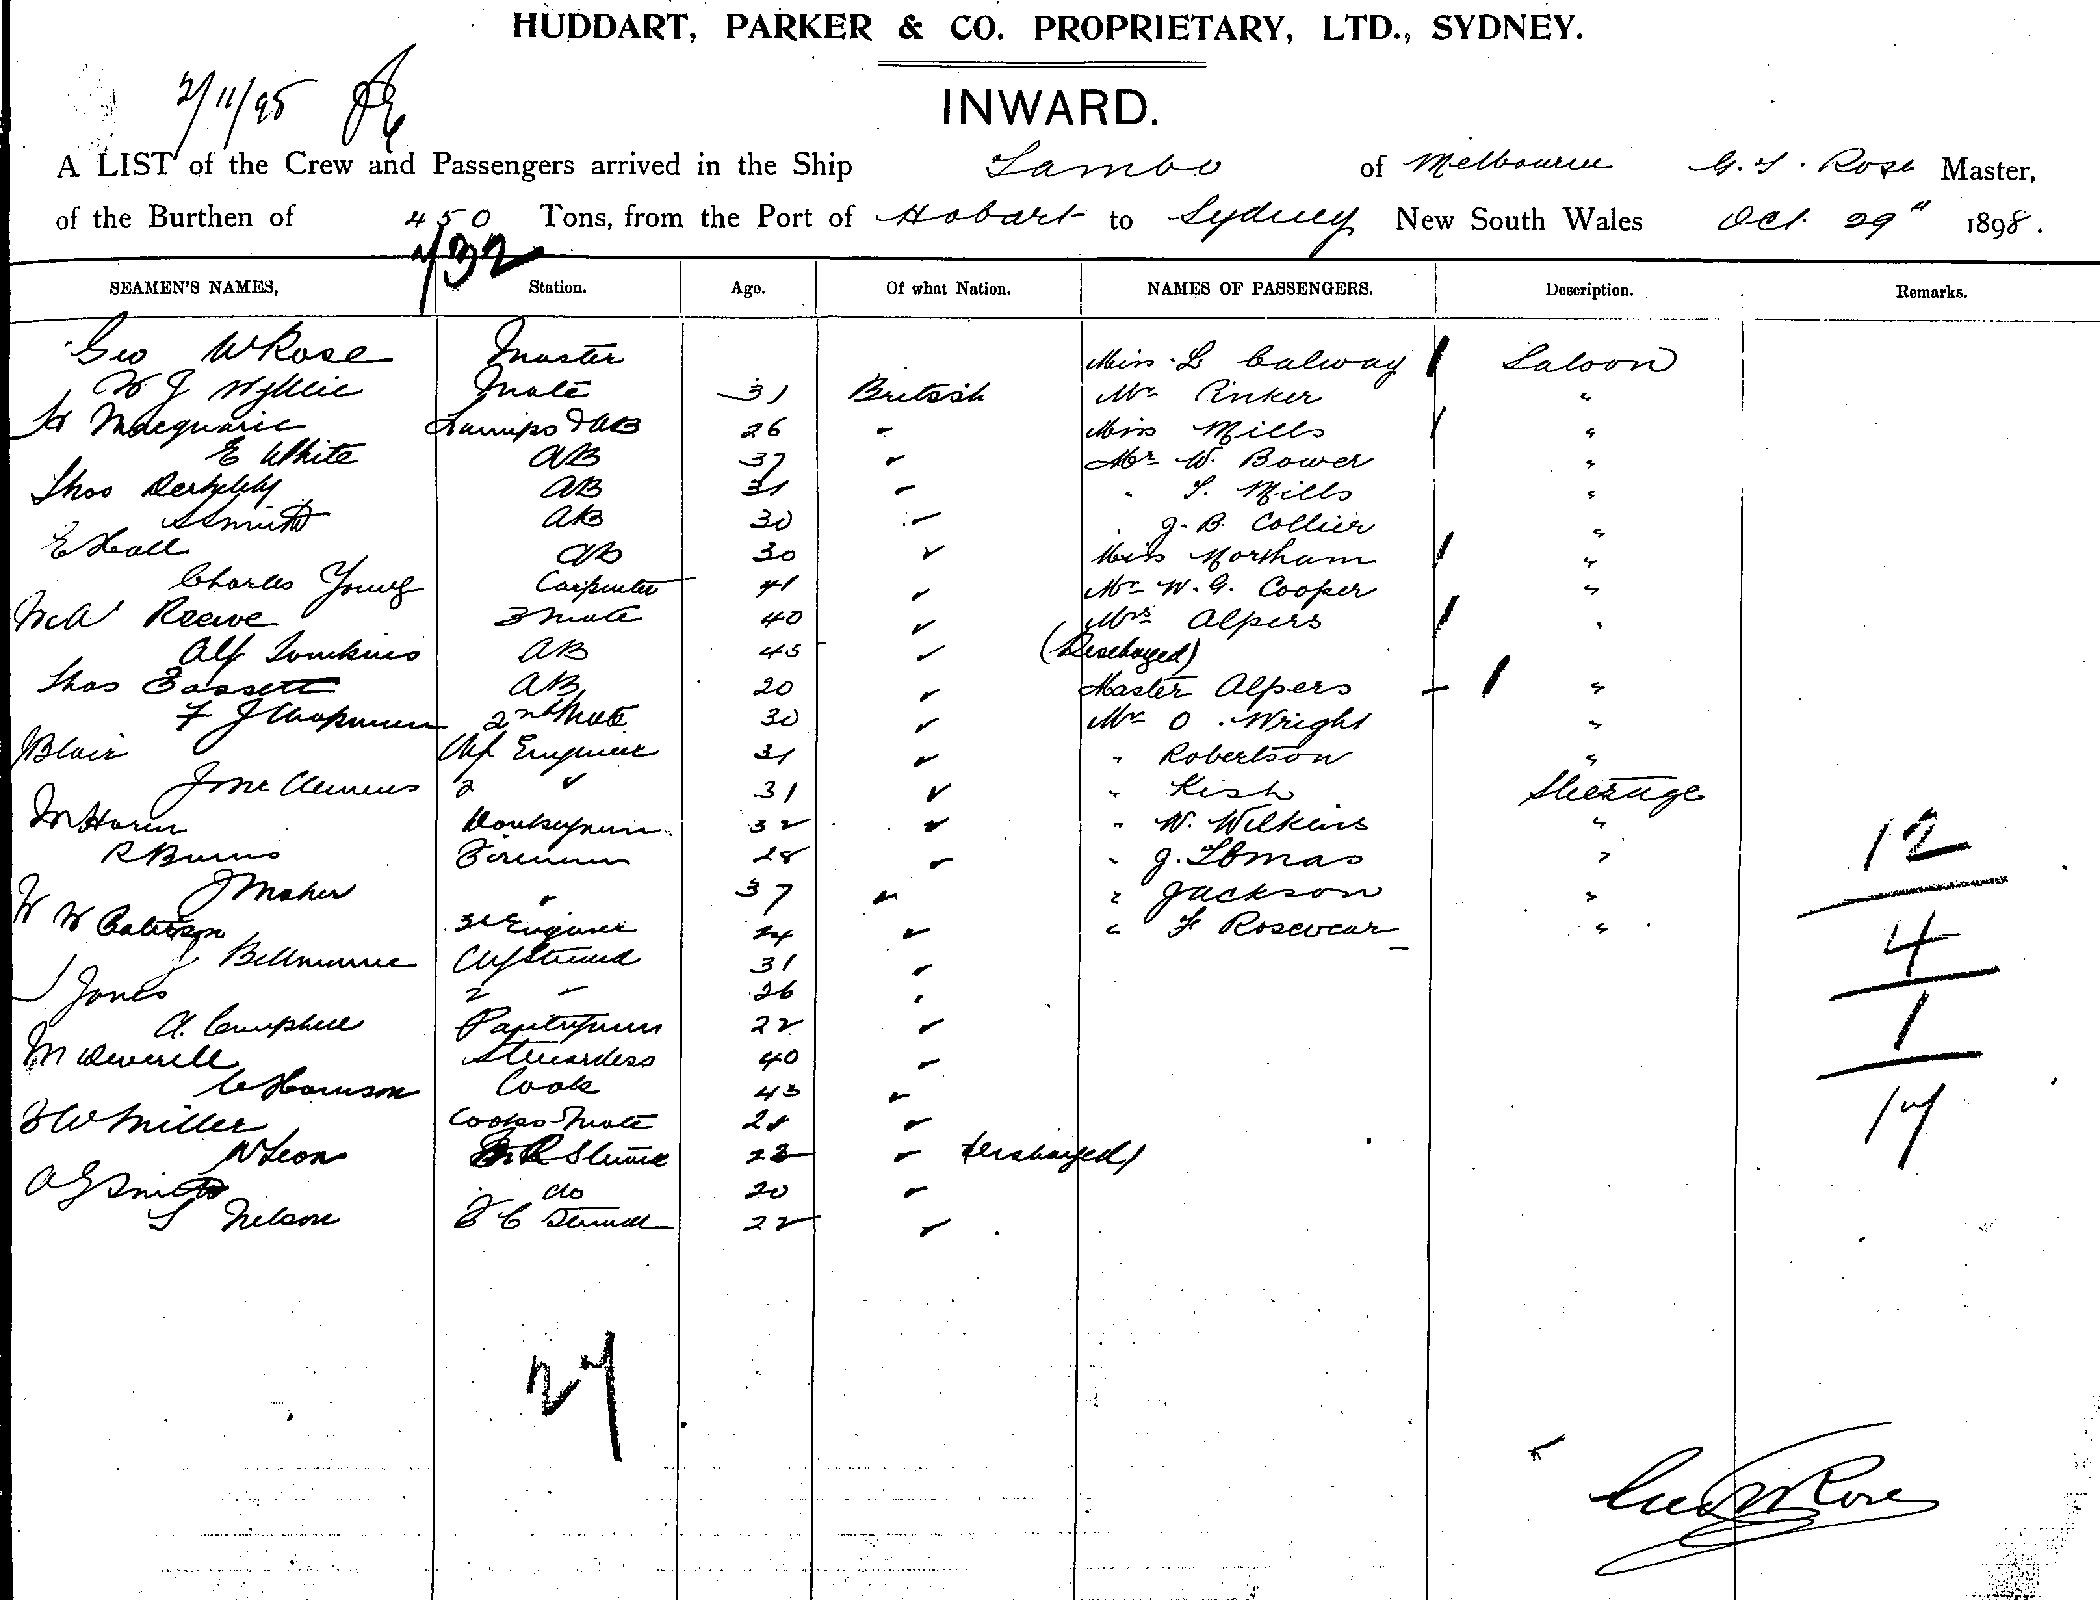 HUDDART, PARKER & CO. PROPRIETARY, LTD., SYDNEY.
2/11/98
INWARD.
A LIST of the Crew and Passengers arrived in the Ship Tambo of Melbourne G. Rose Master,
of the Burthen of 450 Tons, from the Port of Hobart to Sydney New South Wales Oct. 29" 1898.
732
SEAMEN'S NAMES, Station. Age. Of what Nation. NAMES OF PASSENGERS. Description. Remarks.
Geo W Rose Master Miss L Calway Saloon
W J Wyllie Mate 31 British Mr Pinker "
H Macquarie Lamps & AB 26 " Miss Mills "
E White AB 37 " Mr W. Bower "
Thos AB 31 " " T. Mills "
S Smith AB 30 " " J. B. Collier "
E Hall AB 30 " Miss Northam "
Charles Young Carpenter 41 " Mr W. G. Cooper "
Reeve 3 Mate 40 " Mrs Alpers "
Alf Tomkins AB 45 " (Discharged)
Thos Bassett AB 20 " Master Alpers "
F J Chapman 2nd Mate 30 " Mr O. Wright "
J Blair Chf Engineer 31 " " Robertson "
J McClemens 2 " 31 " " Kish Steerage
M Horin Donkeyman 32 " " W. Wilkins "
R Burns Fireman 28 " " J. Thomas " 12
J Maher " 37 " " Jackson "
W W 3rd Engineer 24 " " F Rosevear " 4
J Bellmaine Chf Steward 31 "
J Jones 2 " 26 " 1
A. Campbell Pantryman 22 "
M Deverell Stewardess 40 "
C Harrison Cook 43 "
F W Miller Cooks Mate 28 " 17
W Leon Steward 23 " (discharged)
A G Smith do 20 "
S Nelson F C Steward 22 "
27
Geo W Rose